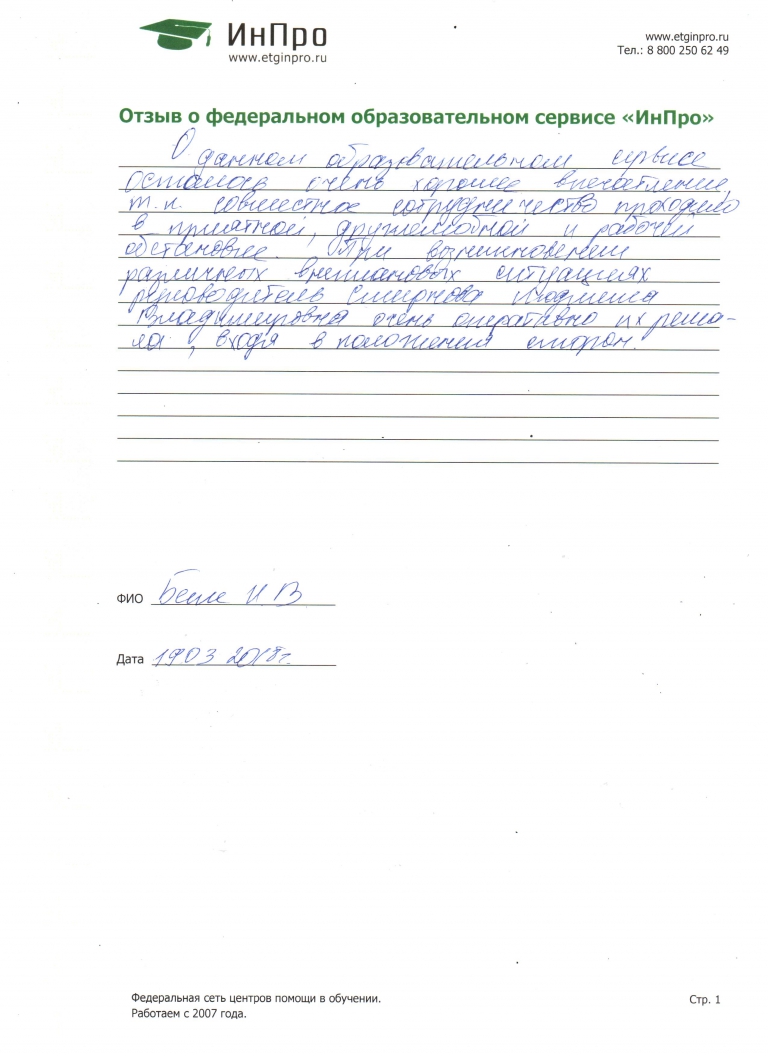 ИнПро
www.etginpro.ru
www.etginpro.ru
Тел.: 8 800 250 62 49
Отзыв о федеральном образовательном сервисе «ИнПро»
О данном образовательном сервисе
осталось очень хорошее впечатление,
т.к. совместное сотрудничество проходило
в приятной, дружелюбной и рабочей
обстановке. При возникновении
различных внештатовых ситуациях
руководитель Смирнова Людмила
Владимировна очень оперативно их реша-
ла, входя в положения сторон.
ФИО И.В
Дата 19 03 2018г.
Федеральная сеть центров помощи в обучении.
Работаем с 2007 года.
Стр. 1